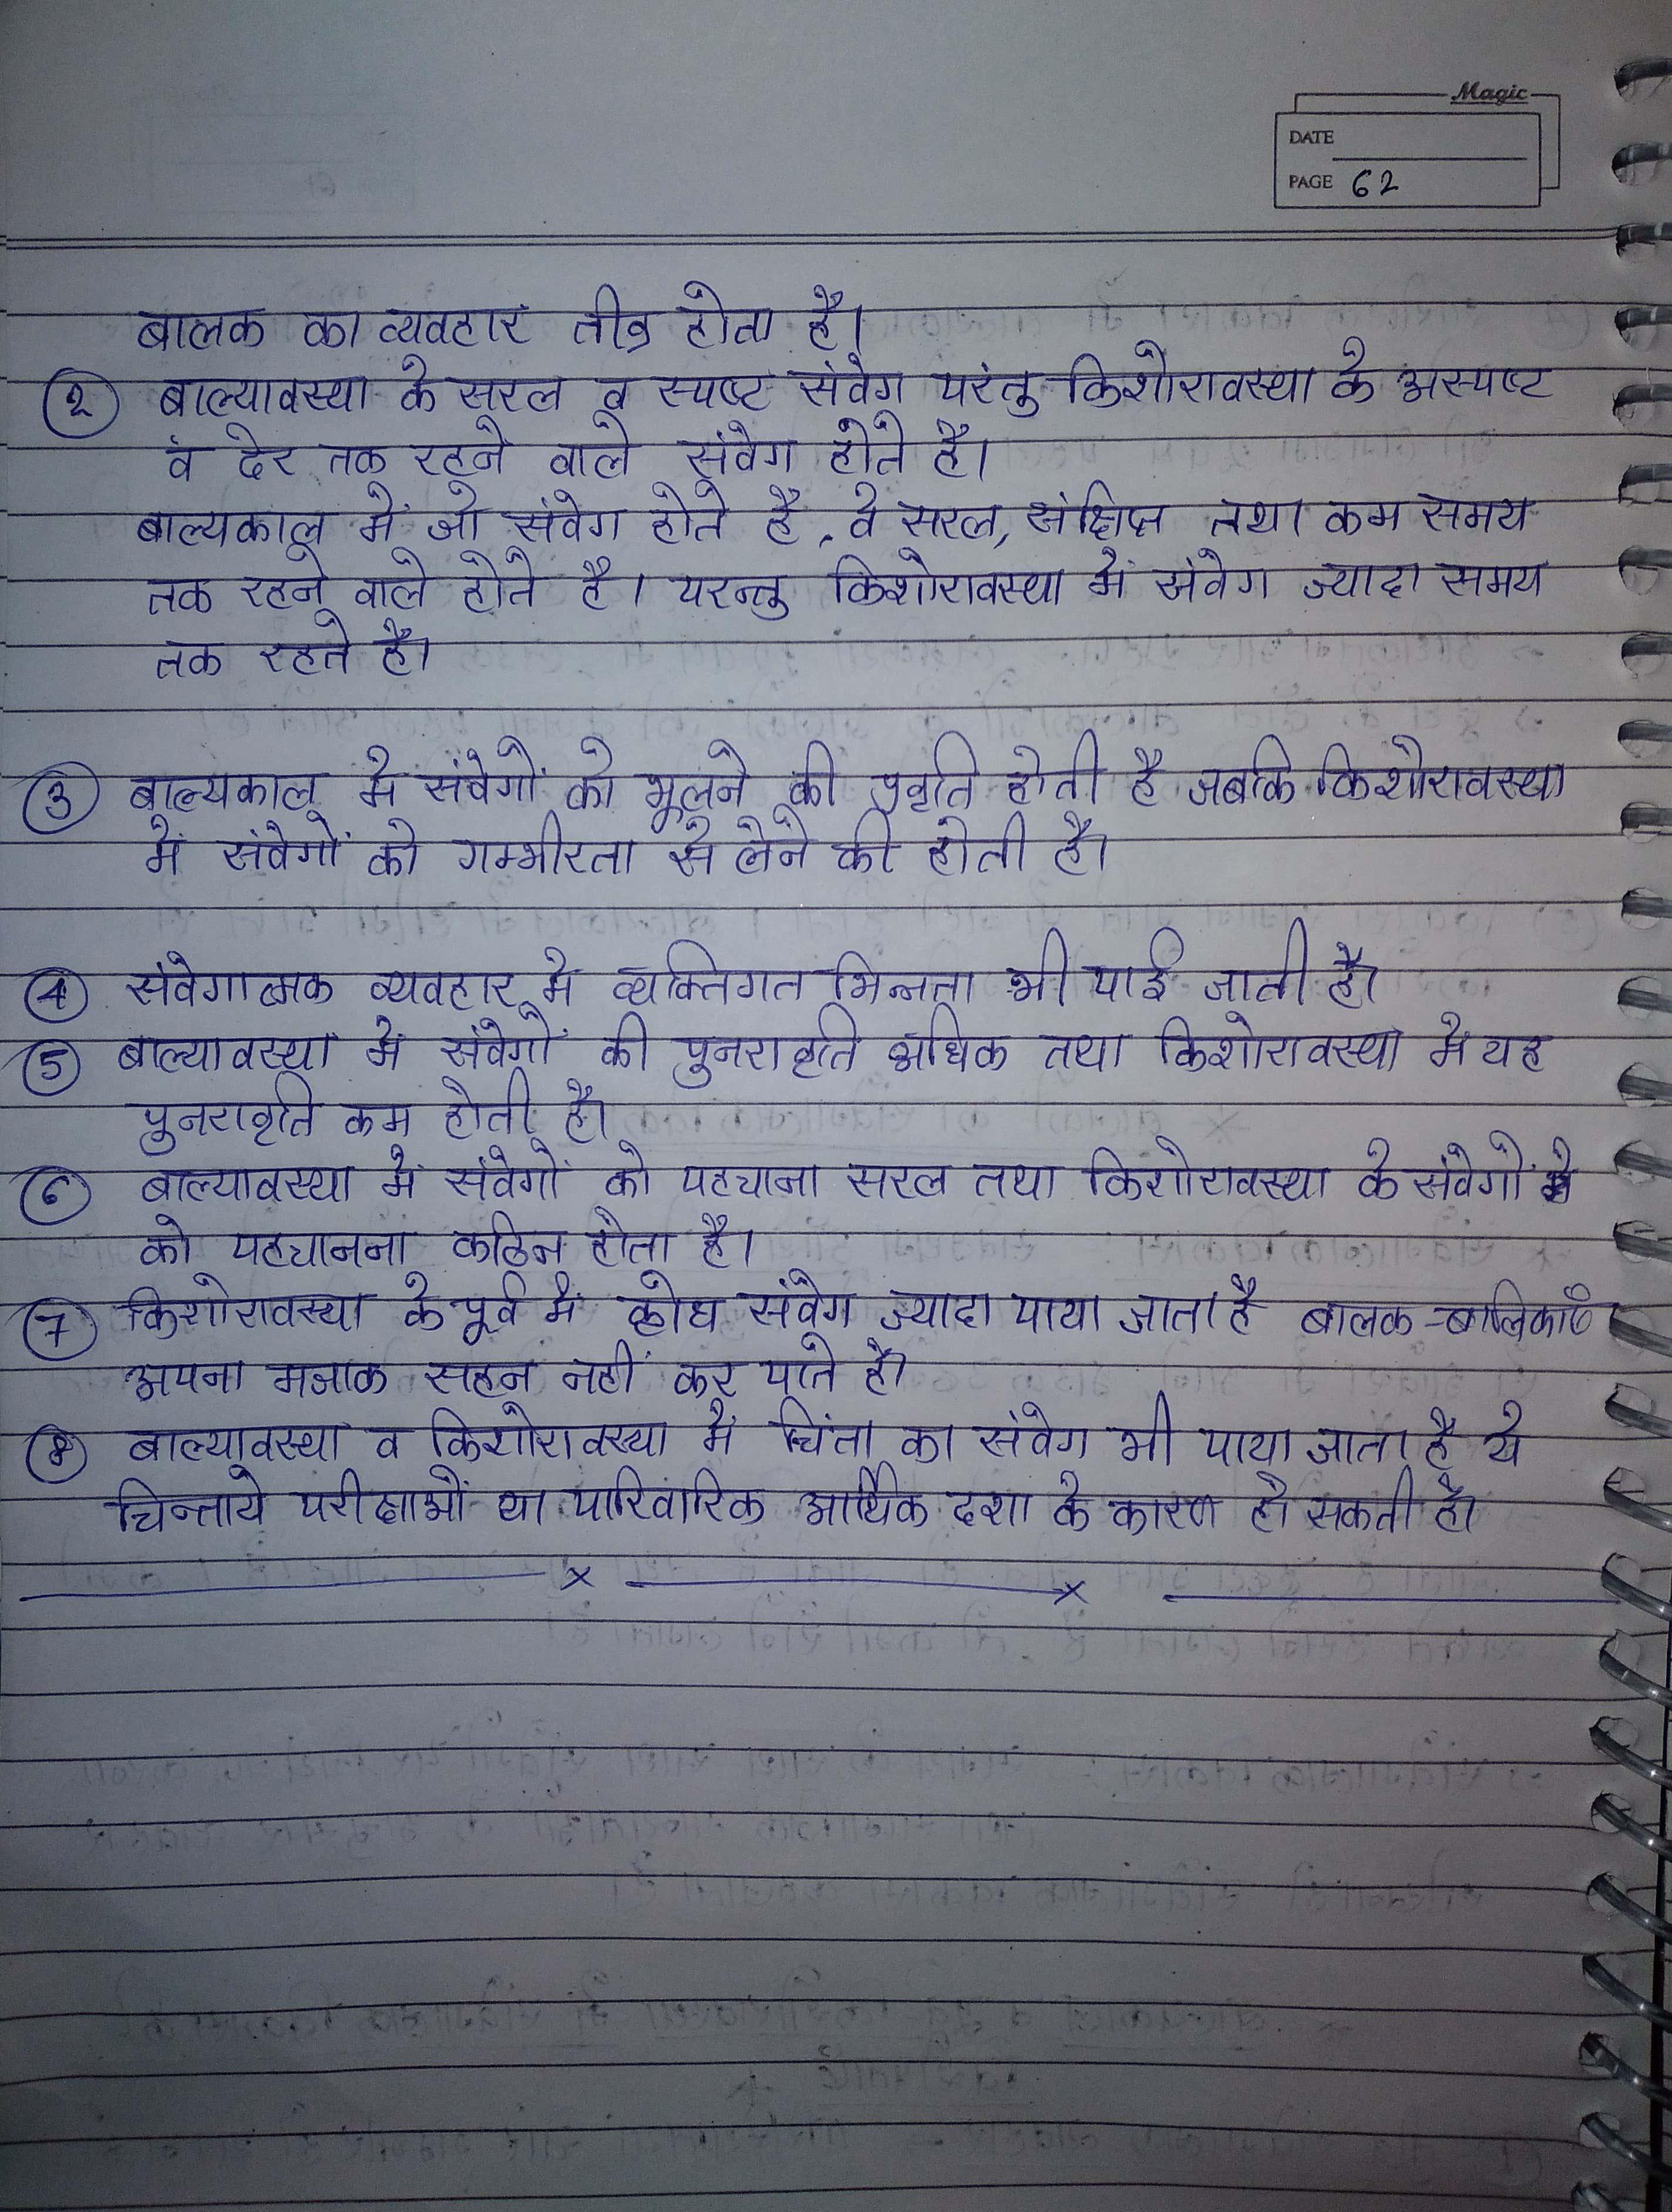 Magic
DATE
PAGE 62
बालक का व्यवहार तीव्र होता है।
② बाल्यावस्था के सरल व स्पष्ट संवेग परंतु किशोरावस्था के अस्पष्ट
व देर तक रहने वाले संवेग होते है।
बाल्यकाल में जो संवेग होते है, वे सरल, संक्षिप्त तथा कम समय
तक रहने वाले होते है। परन्तु किशोरावस्था में संवेग ज्यादा समय
तक रहते है।
③ बाल्यकाल में संवेगों को भूलने की प्रवृति होती है जबकि किशोरावस्था
में संवेगों को गम्भीरता से लेने की होती है।
④ संवेगात्मक व्यवहार में व्यक्तिगत भिन्नता भी पाई जाती है।
⑤ बाल्यावस्था में संवेगों की पुनरावृति अधिक तथा किशोरावस्था में यह
पुनरावृति कम होती है।
⑥ बाल्यावस्था में संवेगों को पहचाना सरल तथा किशोरावस्था के संवेगों
को पहचानना कठिन होता है।
⑦ किशोरावस्था के पूर्व में क्रोध संवेग ज्यादा पाया जाता है बालक-बालिकाएँ
अपना मजाक सहन नहीं कर पाते है।
⑧ बाल्यावस्था व किशोरावस्था में चिंता का संवेग भी पाया जाता है ये
चिन्ताये परीक्षाओं या पारिवारिक आर्थिक दशा के कारण हो सकती है।